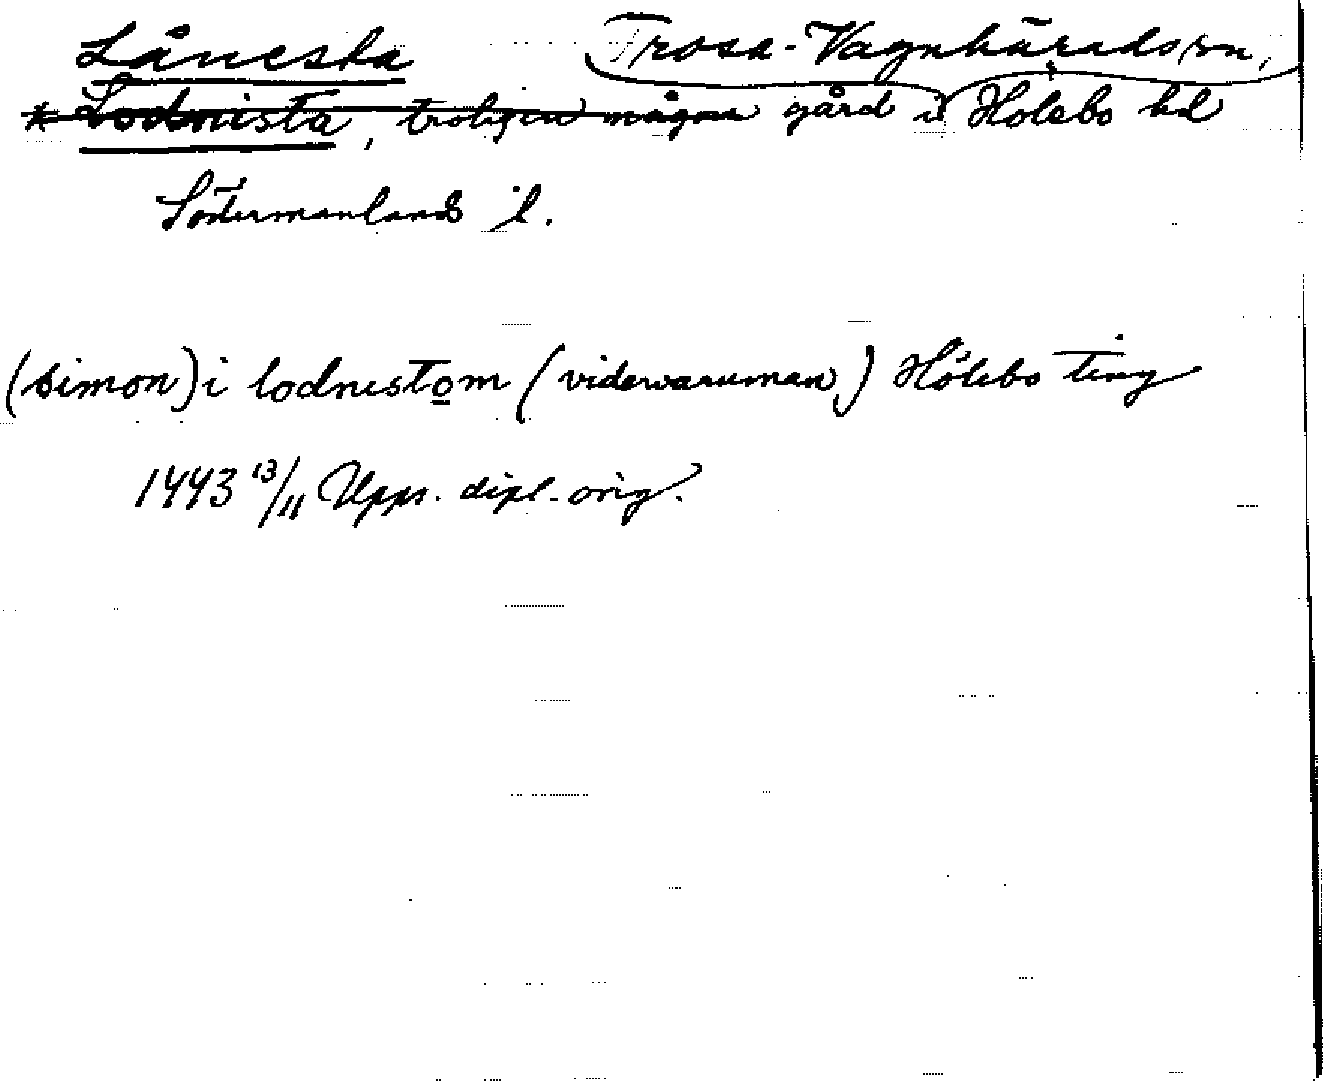 Låncsta Trosa-Vagnhärads sn,
* Lodnista, troligen någon gård i Hölebo hd
Södermanlands l.
(simon) i lodnistom (viderwaruman) Hölebo ting
1443 13/11 Upps. dipl. orig.